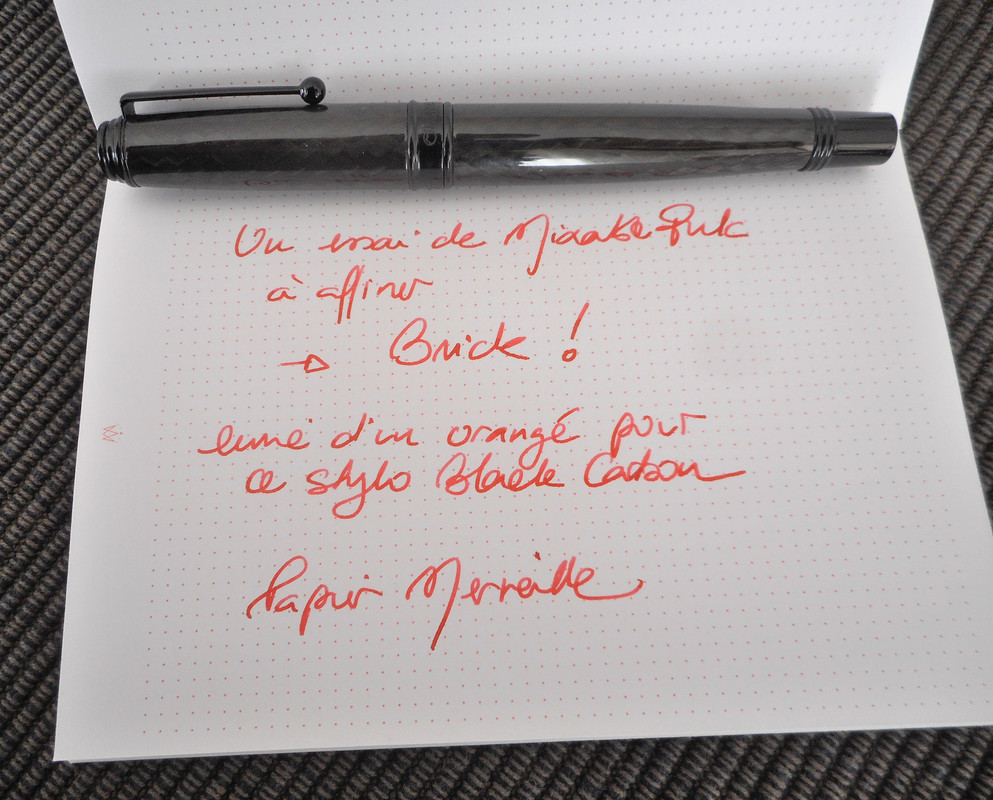 Un essai de Mixable Ink
à affiner
→ Brick !
envie d'un orangé pour
ce stylo Black Carbon
Papier Merveille